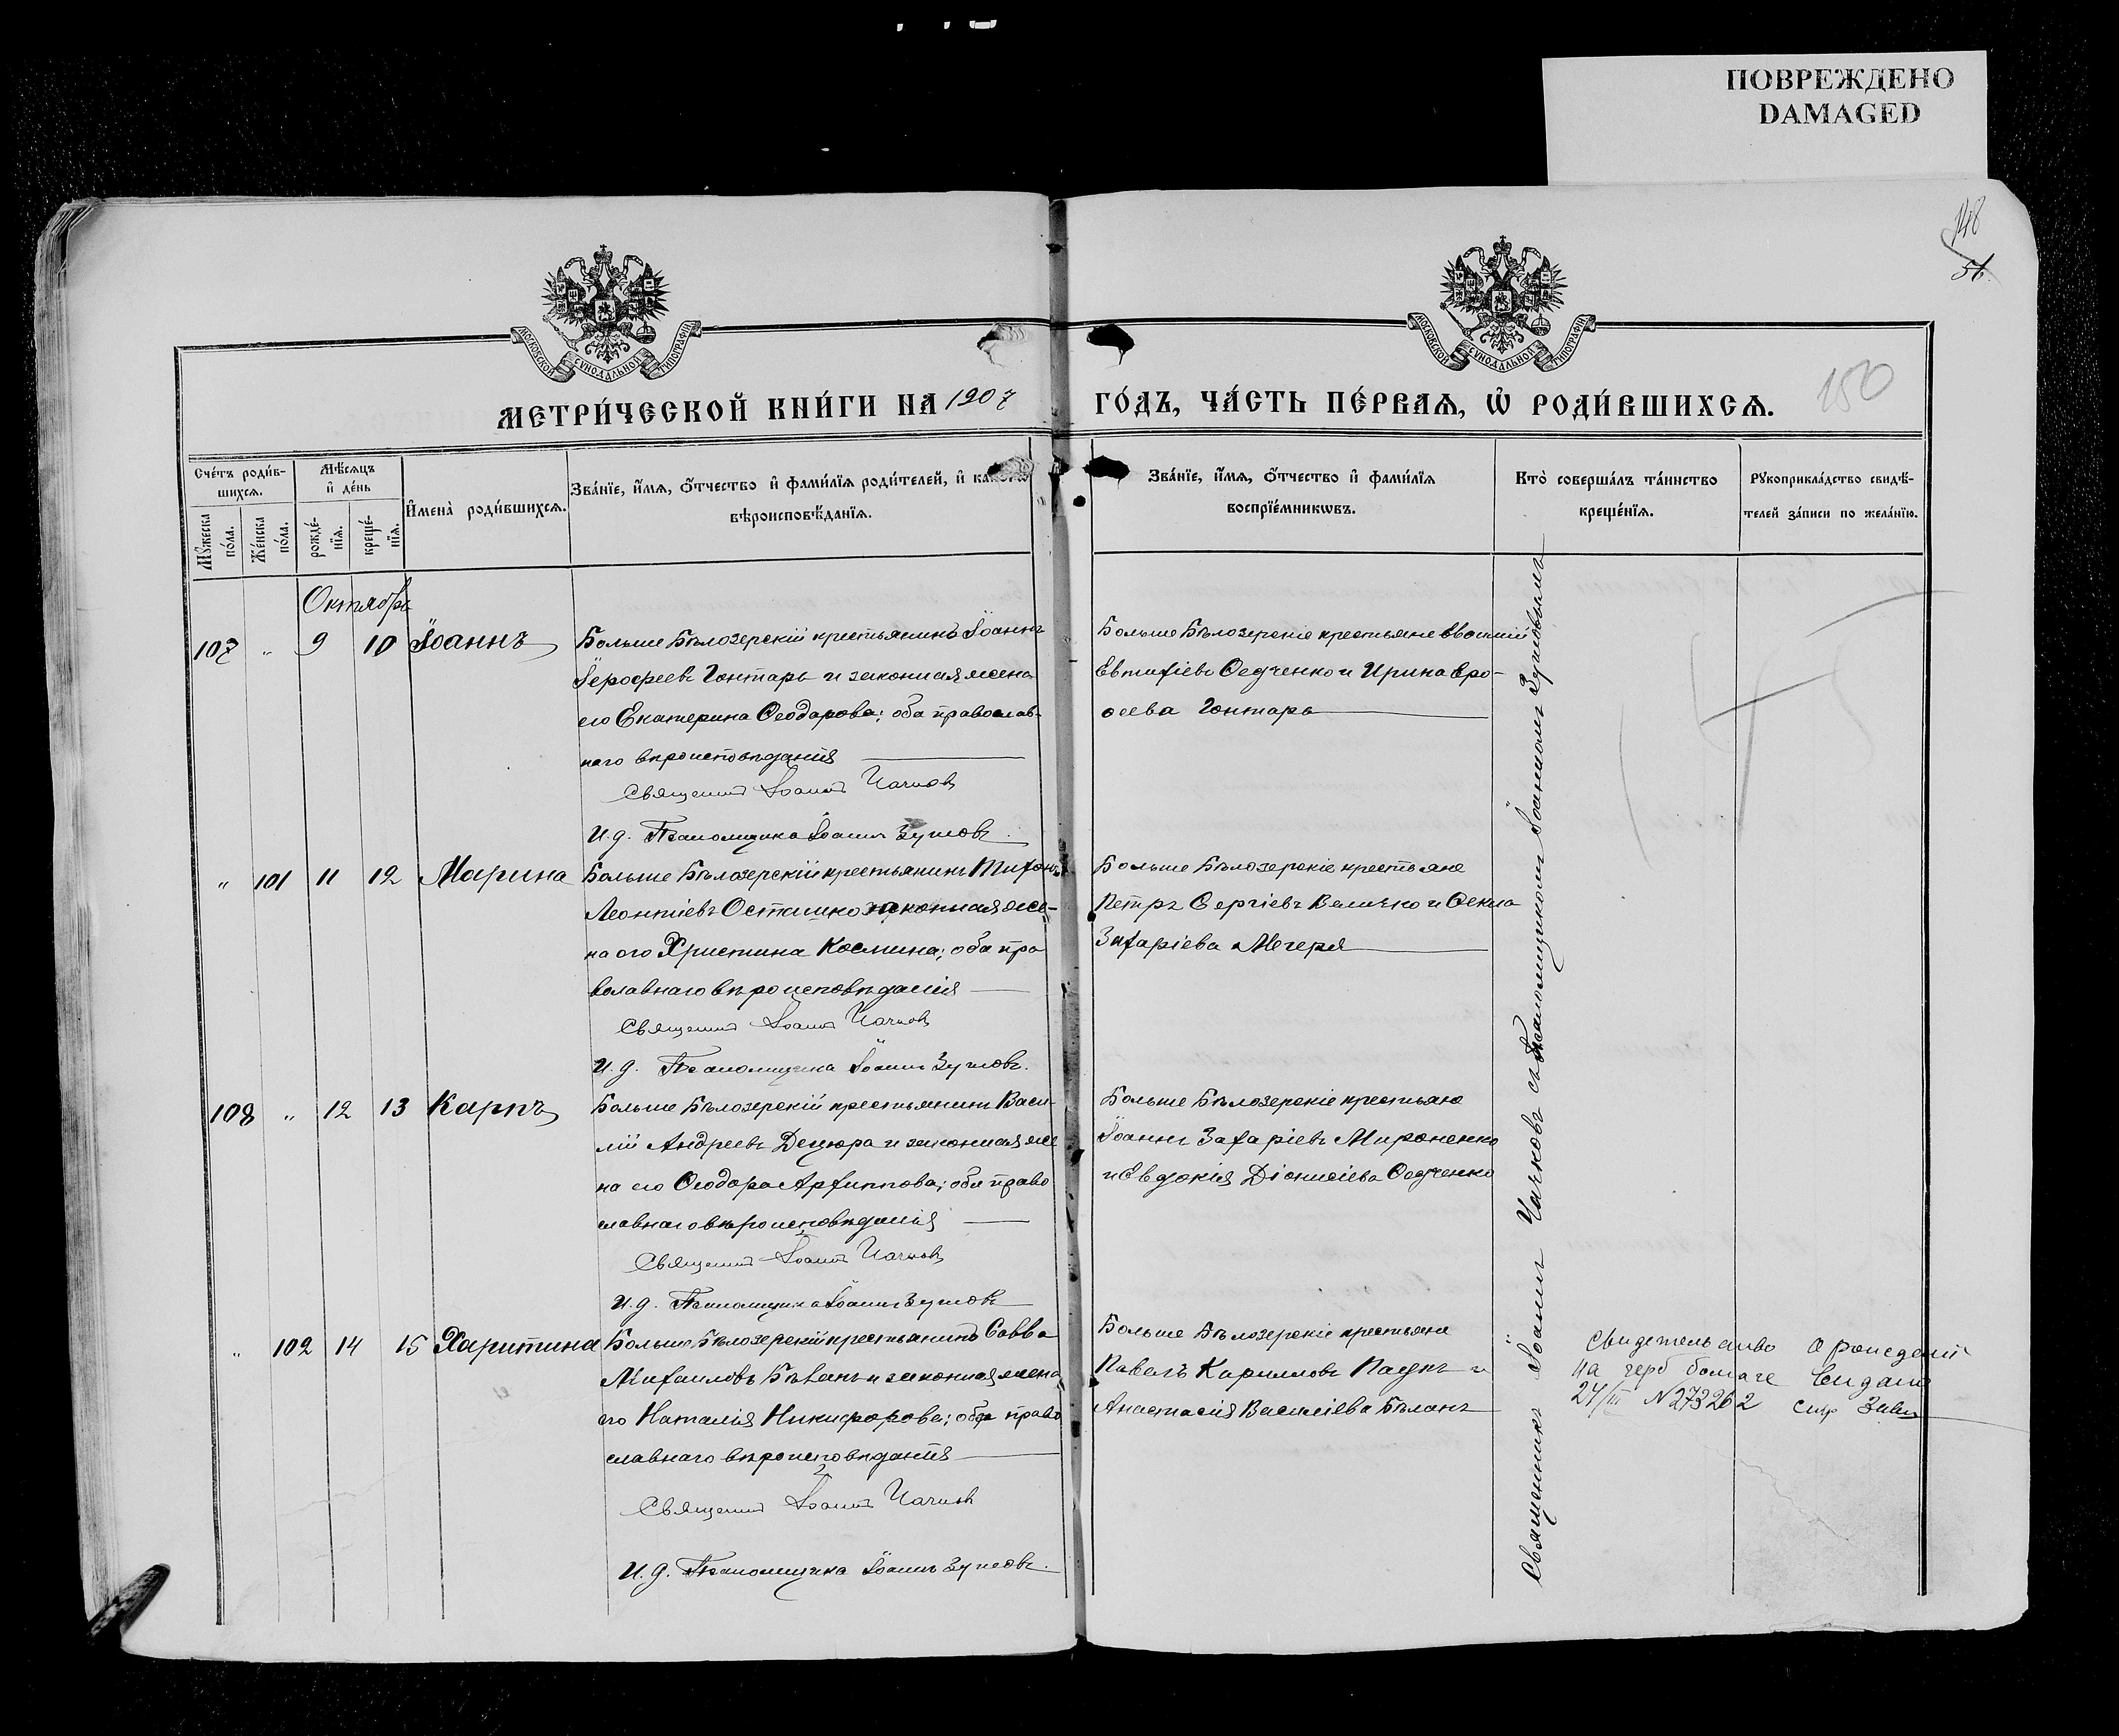 ПОВРЕЖДЕНО
DAMAGED
148
56
150
МОСКОВСКОЙ СѴНОДАЛЬНОЙ ТИПОГРАФІИ
МОСКОВСКОЙ СѴНОДАЛЬНОЙ ТИПОГРАФІИ
МЕТРИ́ЧЕСКОЙ КНИ́ГИ НА 1907 ГО́ДЪ, ЧА́СТЬ ПЕ́РВАѦ, Ѽ РОДИ́ВШИХСѦ.
Сче́тъ роди́в-
шихсѧ.
Мѣ́сѧцъ
и҆ де́нь
Мꙋ́жеска
по́ла.
Же́нска
по́ла.
рожде́-
нїѧ.
креще́-
нїѧ.
И҆мена̀ роди́вшихсѧ.
Зва́нїе, и҆́мѧ, ѻ҆́тчество и҆ фами́лїѧ роди́телей, и҆
вѣроисповѣ́данїѧ.
Зва́нїе, и҆́мѧ, ѻ҆́тчество и҆ фами́лїѧ
воспрїе́мникѡвъ.
Кто̀ соверша́лъ та́инство
креще́нїѧ.
Рꙋкоприкла́дство свидѣ́-
телей за́писи по жела́нїю.
Октября
107 " 9 10 Іоаннъ
Больше Бѣлозерскій крестьянинъ Іоаннъ
Іерофеевъ Гонтарь и законная жена
его Екатерина Ѳеодорова; оба православ-
наго вѣроисповѣданія
Священникъ Іоаннъ Чачковъ
И.д. Псаломщика Іоаннъ Зушовъ
Больше Бѣлозерскіе крестьяне
Евтихіевъ Ѳедченко и Ирина Еро-
ѳеева Гонтарь
" 101 11 12 Марина
Больше Бѣлозерскій крестьянинъ Тихонъ
Леонтіевъ Осташко законная же-
на его Христина Космина; оба пра
вославнаго вѣроисповѣданія
Священникъ Іоаннъ Чачковъ
И.д. Псаломщика Іоаннъ Зушовъ.
Больше Бѣлозерскіе крестьяне
Петръ Сергіевъ Величко и Ѳекла
Захаріева Мегеря
108 " 12 13 Карпъ
Больше Бѣлозерскій крестьянинъ Васи-
лій Андреевъ Децюра и законная же
на его Ѳеодора Архиппова; оба право
славнаго вѣроисповѣданія
Священникъ Іоаннъ Чачковъ
И.д. Псаломщика Іоаннъ Зушовъ
Больше Бѣлозерскіе крестьяне
Іоаннъ Захаріевъ Мироненко
и Евдокія Діонисіева Ѳедченко
" 102 14 15 Харитина
Больше Бѣлозерскій крестьянинъ Савва
Михаиловъ Бѣланъ и законная жена
его Наталія Никифорова; оба право
славнаго вѣроисповѣданія
Священникъ Іоаннъ Чачковъ
И.д. Псаломщика Іоаннъ Зушовъ.
Больше Бѣлозерскіе крестьяне
Павелъ Кирилловъ Пацукъ и
Анастасія Василіева Бѣланъ
Священникъ Іоаннъ Чачковъ съ Псаломщикомъ Іоанномъ Зушовымъ
Свидетельство о рождении
на герб бумаге выдано
24/III N 273262